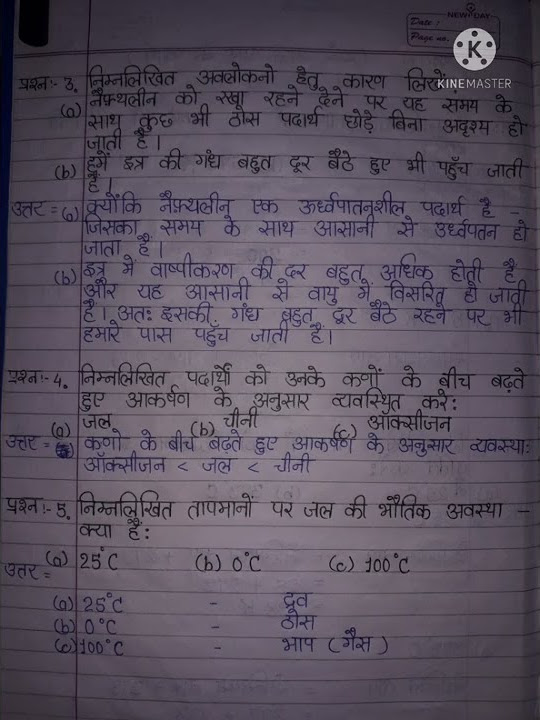 NEW DAY
Date :
Page no.
K
KINEMASTER
प्रश्न:- 3. निम्नलिखित अवलोकनो हेतु कारण लिखें
(a) नैफ़्थलीन को रखा रहने देने पर यह समय के
साथ कुछ भी ठोस पदार्थ छोड़े बिना अदृश्य हो
जाती है।
(b) हमें इत्र की गंध बहुत दूर बैठे हुए भी पहुँच जाती
है।
उत्तर = (a) क्योंकि नैफ़्थलीन एक ऊर्ध्वपातनशील पदार्थ है -
जिसका समय के साथ आसानी से उर्ध्वपतन हो
जाता है।
(b) इत्र में वाष्पीकरण की दर बहुत अधिक होती है
और यह आसानी से वायु में विसरित हो जाती
है। अतः इसकी गंध बहुत दूर बैठे रहने पर भी
हमारे पास पहुँच जाती है।
प्रश्न:- 4. निम्नलिखित पदार्थों को उनके कणों के बीच बढ़ते
हुए आकर्षण के अनुसार व्यवस्थित करे:
(a) जल (b) चीनी (c) ऑक्सीजन
उत्तर = कणो के बीच बढ़ते हुए आकर्षण के अनुसार व्यवस्था:
ऑक्सीजन < जल < चीनी
प्रश्न:- 5. निम्नलिखित तापमानों पर जल की भौतिक अवस्था -
क्या है:
(a) 25°C (b) 0°C (c) 100°C
उत्तर =
(a) 25°C - द्रव
(b) 0°C - ठोस
(c) 100°C - भाप (गैस)